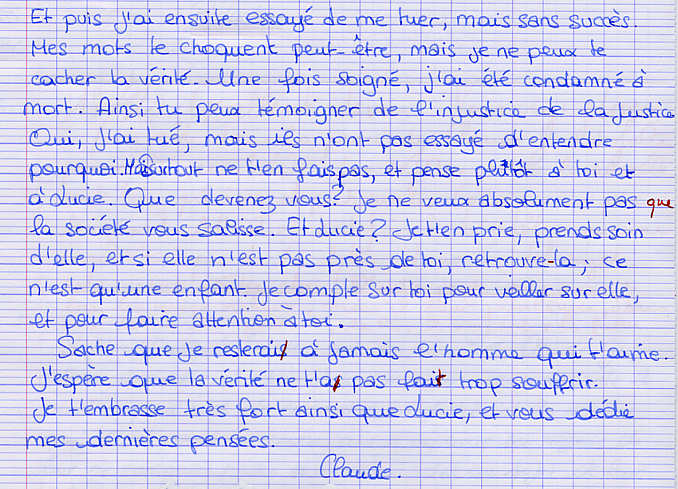 Et puis j'ai ensuite essayé de me tuer, mais sans succès.
Mes mots te choquent peut-être, mais je ne peux te
cacher la vérité. Une fois soigné, j'ai été condamné à
mort. Ainsi tu peux témoigner de l'injustice de la justice
Oui, j'ai tué, mais ils n'ont pas essayé d'entendre
pourquoi. Mais surtout ne t'en fais pas, et pense plutôt à toi et
à Lucie. Que devenez vous? Je ne veux absolument pas que
la société vous salisse. Et Lucie? Je t'en prie, prends soin
d'elle, et si elle n'est pas près de toi, retrouve-la; ce
n'est qu'une enfant. Je compte sur toi pour veiller sur elle,
et pour faire attention à toi.
Sache que je resterai à jamais l'homme qui t'aime.
J'espère que la vérité ne t'a pas fait trop souffrir.
Je t'embrasse très fort ainsi que Lucie, et vous dédie
mes dernières pensées.
Claude.